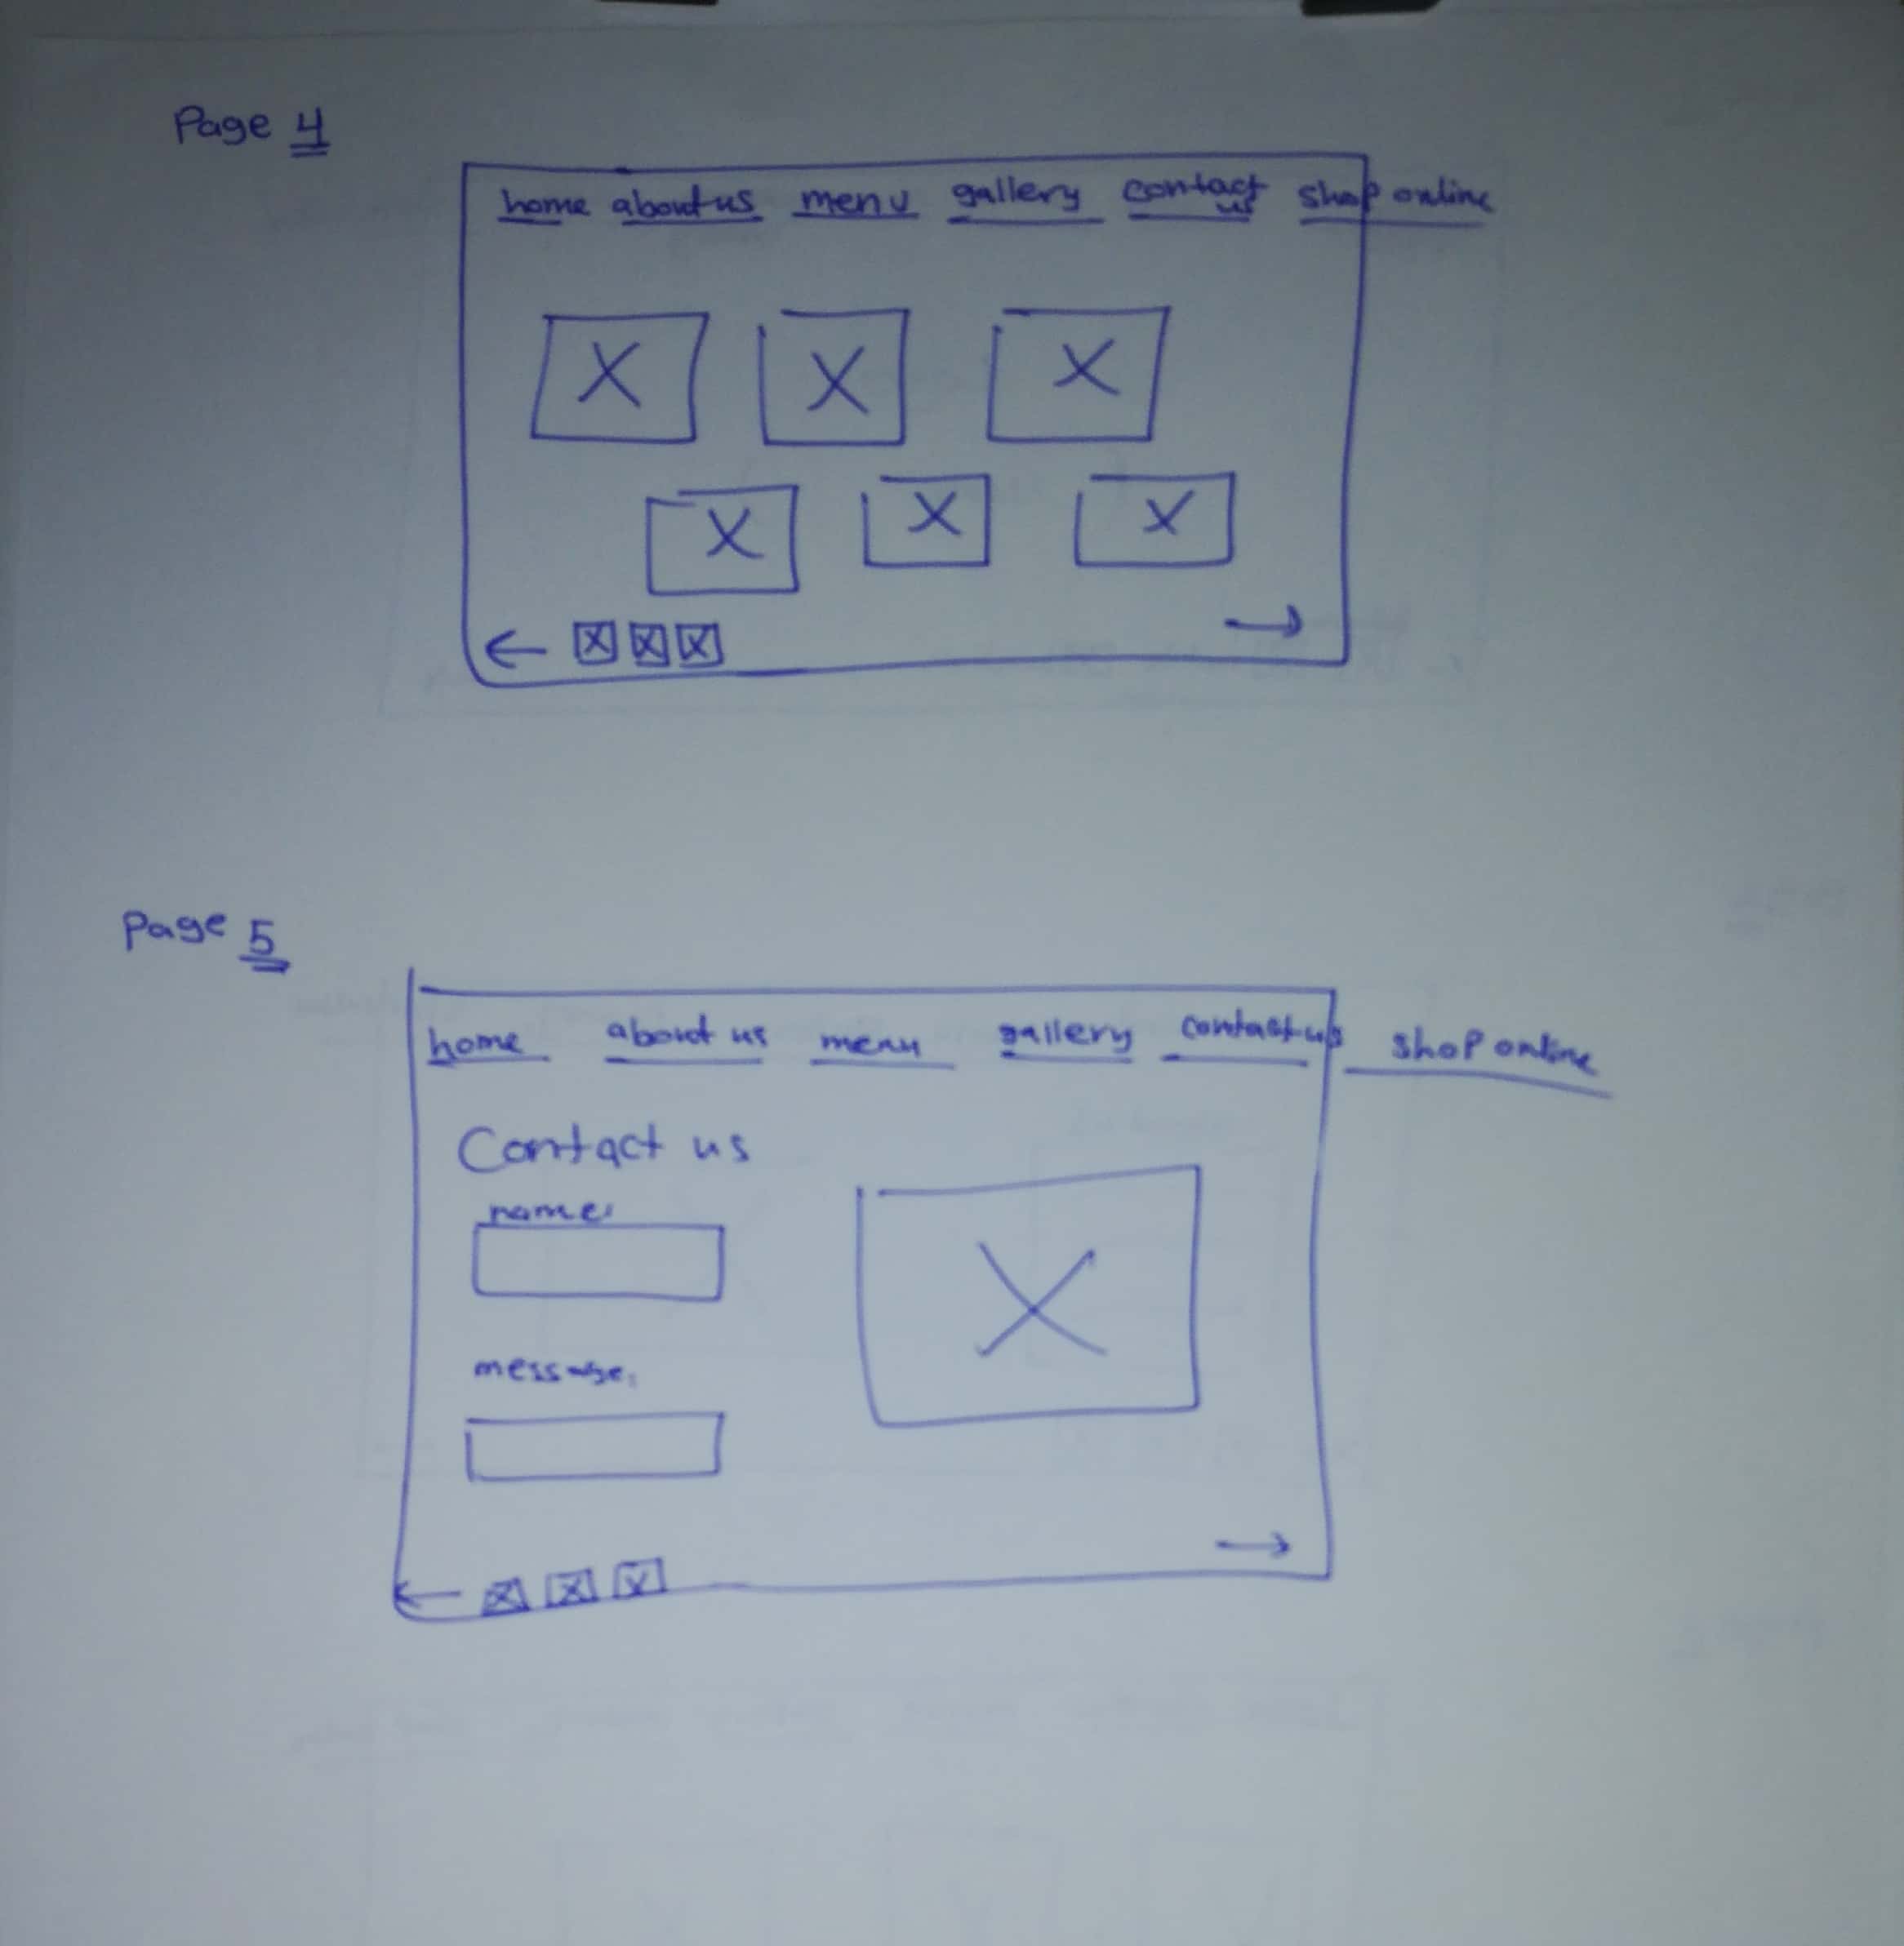 Page 4
home about us menu gallery contact us shop online
Page 5
home about us menu gallery contact us shop online
Contact us
name:
message: